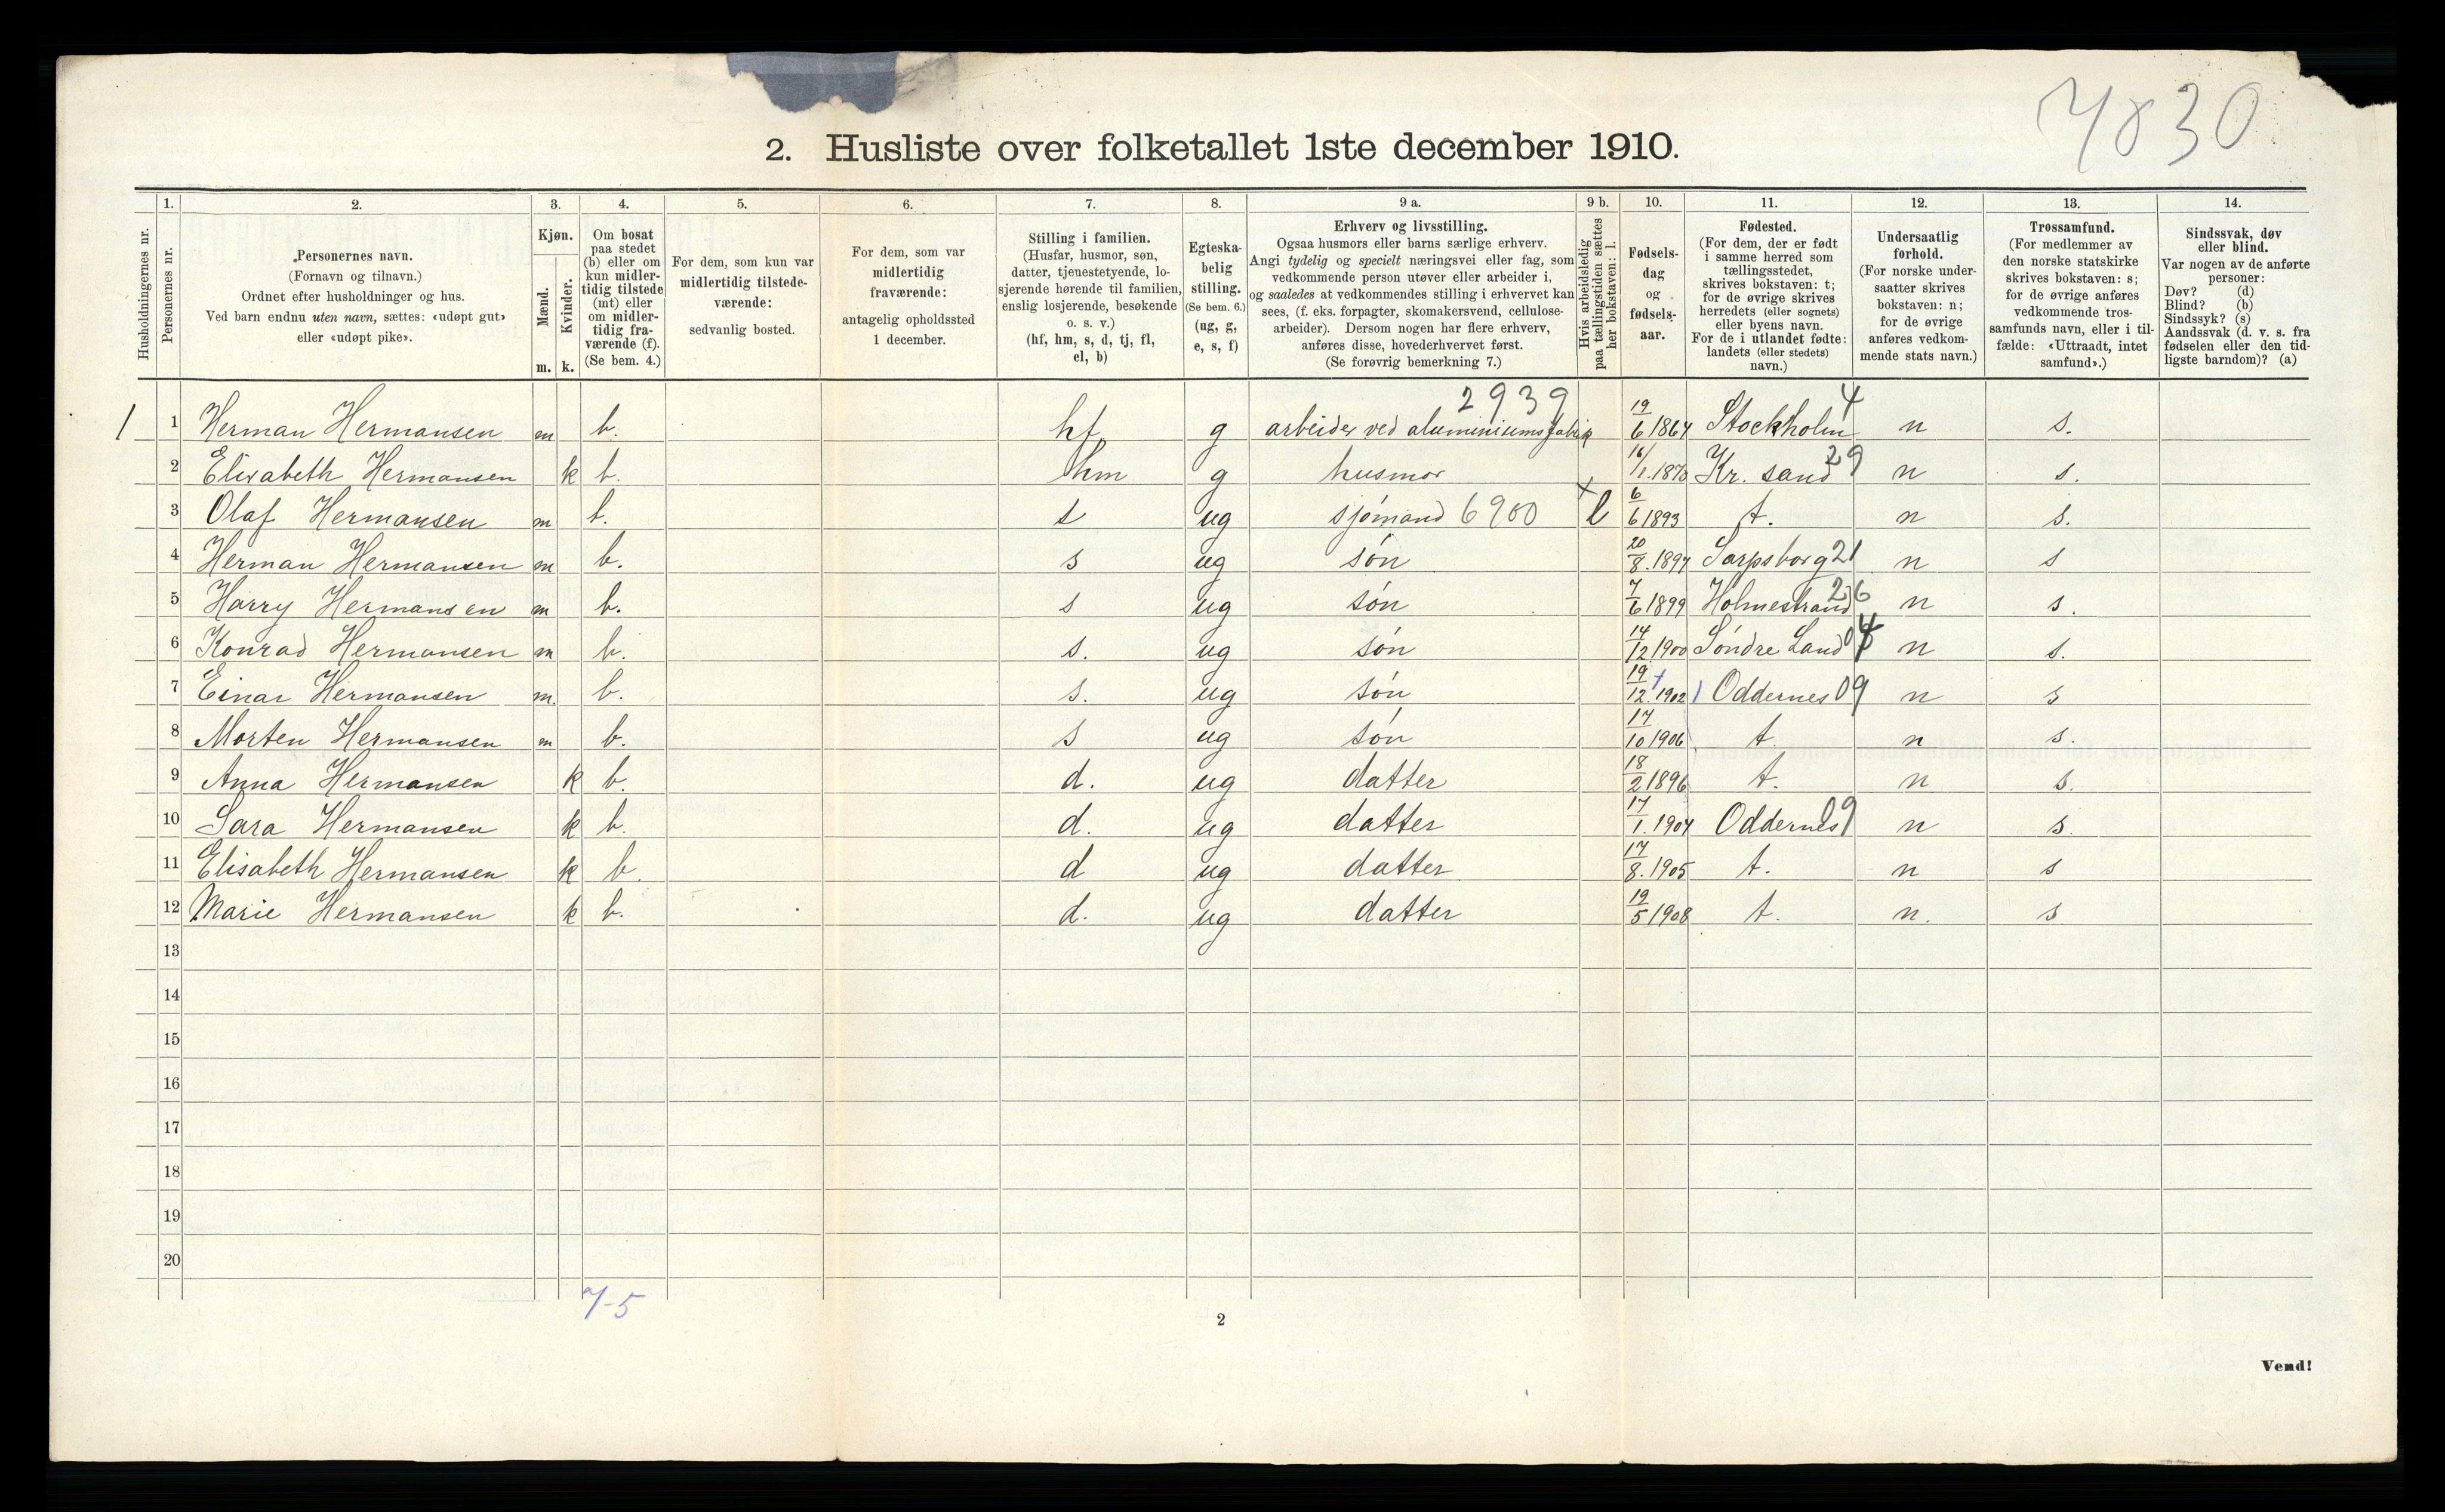 7830
2. Husliste over folketallet 1ste december 1910.
Husholdningernes nr.
1.
Personernes nr.
2.
Personernes navn.
(Fornavn og tilnavn.)
Ordnet efter husholdninger og hus.
Ved barn endnu uten navn, sættes: «udøpt gut»
eller «udøpt pike».
3.
Kjøn.
Mænd.
Kvinder.
m. k.
4.
Om bosat
paa stedet
(b) eller om
kun midler-
tidig tilstede
(mt) eller
om midler-
tidig fra-
værende (f).
(Se bem. 4.)
5.
For dem, som kun var
midlertidig tilstede-
værende:
sedvanlig bosted.
6.
For dem, som var
midlertidig
fraværende:
antagelig opholdssted
1 december.
7.
Stilling i familien.
(Husfar, husmor, søn,
datter, tjenestetyende, lo-
sjerende hørende til familien,
enslig losjerende, besøkende
o. s. v.)
(hf, hm, s, d, tj, fl,
el, b)
8.
Egteska-
belig
stilling.
(Se bem. 6.)
(ug, g,
e, s, f)
9 a.
Erhverv og livsstilling.
Ogsaa husmors eller barns særlige erhverv.
Angi tydelig og specielt næringsvei eller fag, som
vedkommende person utøver eller arbeider i,
og saaledes at vedkommendes stilling i erhvervet kan
sees, (f. eks. forpagter, skomakersvend, cellulose-
arbeider). Dersom nogen har flere erhverv,
anføres disse, hovederhvervet først.
(Se forøvrig bemerkning 7.)
9 b.
Hvis arbeidsledig
paa tællingstiden sættes
her bokstaven: l.
10.
Fødsels-
dag
og
fødsels-
aar.
11.
Fødested.
(For dem, der er født
i samme herred som
tællingsstedet,
skrives bokstaven: t;
for de øvrige skrives
herredets (eller sognets)
eller byens navn.
For de i utlandet fødte:
landets (eller stedets)
navn.)
12.
Undersaatlig
forhold.
(For norske under-
saatter skrives
bokstaven: n;
for de øvrige
anføres vedkom-
mende stats navn.)
13.
Trossamfund.
(For medlemmer av
den norske statskirke
skrives bokstaven: s;
for de øvrige anføres
vedkommende tros-
samfunds navn, eller i til-
fælde: «Uttraadt, intet
samfund».)
14.
Sindssvak, døv
eller blind.
Var nogen av de anførte
personer:
Døv? (d)
Blind? (b)
Sindssyk? (s)
Aandssvak (d. v. s. fra
fødselen eller den tid-
ligste barndom)? (a)
2939 4
1 1 Herman Hermansen m b. hf g arbeider ved aluminiumsfabrik 19/6 1864 Stockholm n s.
2 Elisabeth Hermansen k b. hm g husmor 16/1.1870 Kr. sand 29 n s.
3 Olaf Hermansen m b. s ug sjømand 6900 x l 6/6 1893 t. n s.
4 Herman Hermansen m b. s ug søn 20/8.1897 Sarpsborg 21 n s
5 Harry Hermansen m b. s ug søn 7/6 1899 Holmestrand 26 n s.
6 Konrad Hermansen m b. s. ug søn 14/12.1900 Søndre Land n s.
7 Einar Hermansen m. b. s. ug søn 19/12.1902 Oddernes 09 n s
8 Morten Hermansen m b. s ug søn 17/10 1906 t. n s.
9 Anna Hermansen k b. d. ug datter 18/2 1896 t. n s.
10 Sara Hermansen k b. d. ug datter 17/1.1904 Oddernes 09 n s.
11 Elisabeth Hermansen k b. d ug datter 17/8.1905 t. n s
12 Marie Hermansen k b. d. ug datter 19/5 1908 t. n. s
13
14
15
16
17
18
19
20
7-5
2
Vend!